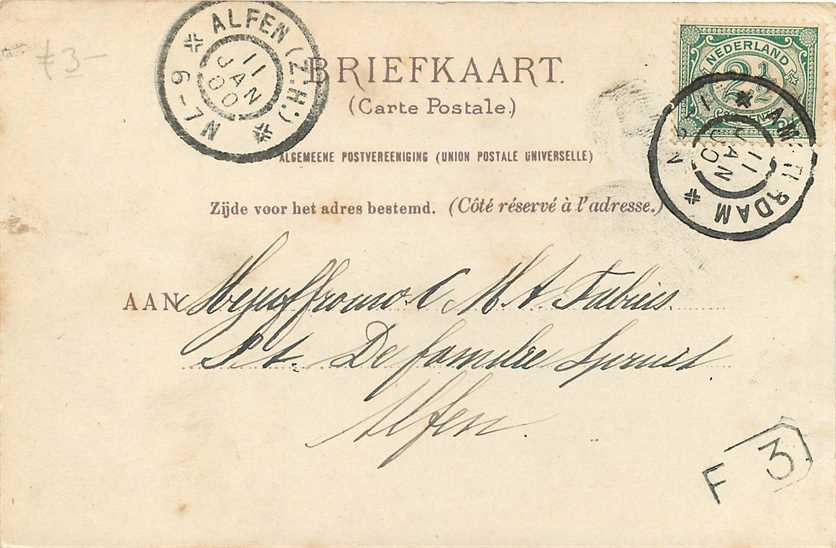 £ 3-
ALFEN (Z.H.)
11
JAN
00
6-7N
NEDERLAND
2½
AMSTERDAM
11
JAN
00
BRIEFKAART.
(Carte Postale.)
ALGEMEENE POSTVEREENIGING (UNION POSTALE UNIVERSELLE)
Zijde voor het adres bestemd. (Côté réservé à l'adresse.)
AAN Mejuffrouw C M A Fabius
p. a. De familie Spruit
Alfen.
F 3